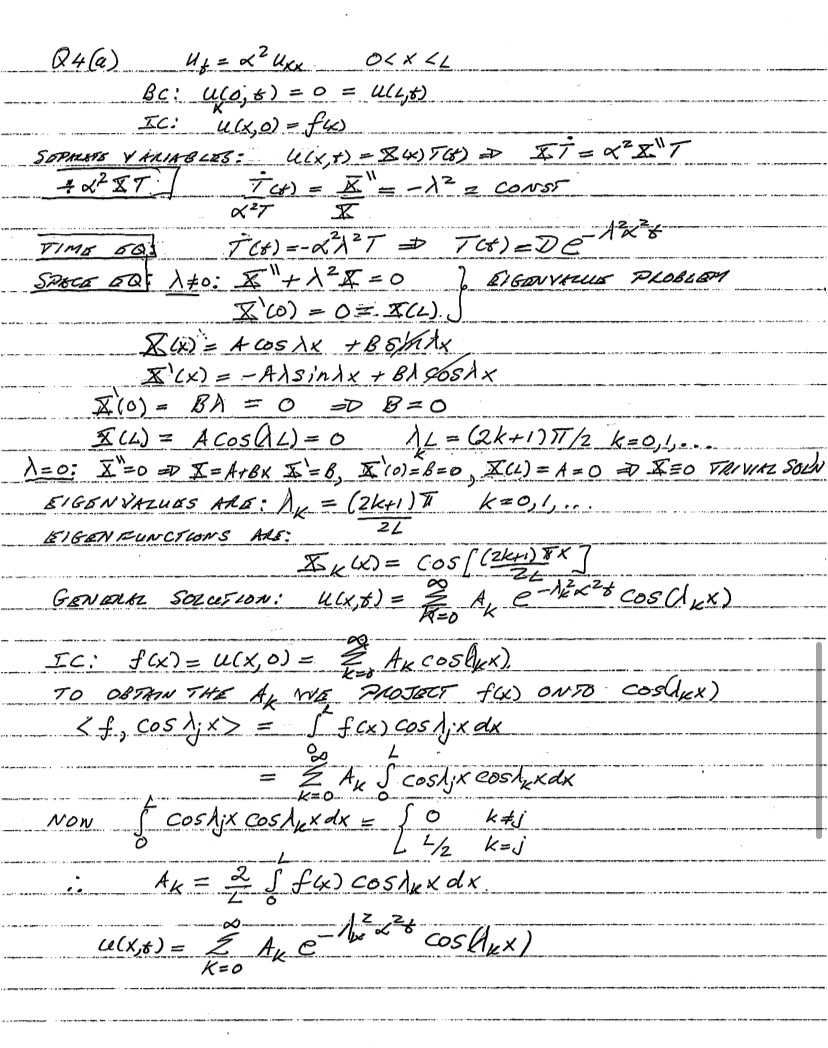 Q4(a) u_t = α² u_xx 0<x<L
BC: u_x(0,t) = 0 = u(L,t)
IC: u(x,0) = f(x)
SEPARATE VARIABLES: u(x,t) = X(x)T(t) ⇒ XṪ = α²X''T
÷ α²XT: Ṫ(t)/α²T = X''/X = -λ² = CONST
TIME EQ: Ṫ(t) = -α²λ²T ⇒ T(t) = De^{-λ²α²t}
SPACE EQ: λ≠0: X'' + λ²X = 0 } EIGENVALUE PROBLEM
X'(0) = 0 = X(L).
X(x) = A cos λx + B sin λx
X'(x) = -Aλ sin λx + Bλ cos λx
X'(0) = Bλ = 0 ⇒ B = 0
X(L) = A cos(λL) = 0 λ_k L = (2k+1)π/2 k=0,1,...
λ=0: X''=0 ⇒ X=A+Bx X'=B, X'(0)=B=0, X(L)=A=0 ⇒ X≡0 TRIVIAL SOLN
EIGENVALUES ARE: λ_k = (2k+1)π/2L k=0,1,...
EIGENFUNCTIONS ARE:
X_k(x) = cos[(2k+1)πx/2L]
GENERAL SOLUTION: u(x,t) = ∑_{k=0}^{∞} A_k e^{-λ_k²α²t} cos(λ_k x)
IC: f(x) = u(x,0) = ∑_{k=0}^{∞} A_k cos(λ_k x).
TO OBTAIN THE A_k WE PROJECT f(x) ONTO cos(λ_k x)
<f, cos λ_j x> = ∫_0^L f(x) cos λ_j x dx
= ∑_{k=0}^{∞} A_k ∫_0^L cos λ_j x cos λ_k x dx
NOW ∫_0^L cos λ_j x cos λ_k x dx = { 0 k≠j
L/2 k=j
∴ A_k = 2/L ∫_0^L f(x) cos λ_k x dx.
u(x,t) = ∑_{k=0}^{∞} A_k e^{-λ_k²α²t} cos(λ_k x)